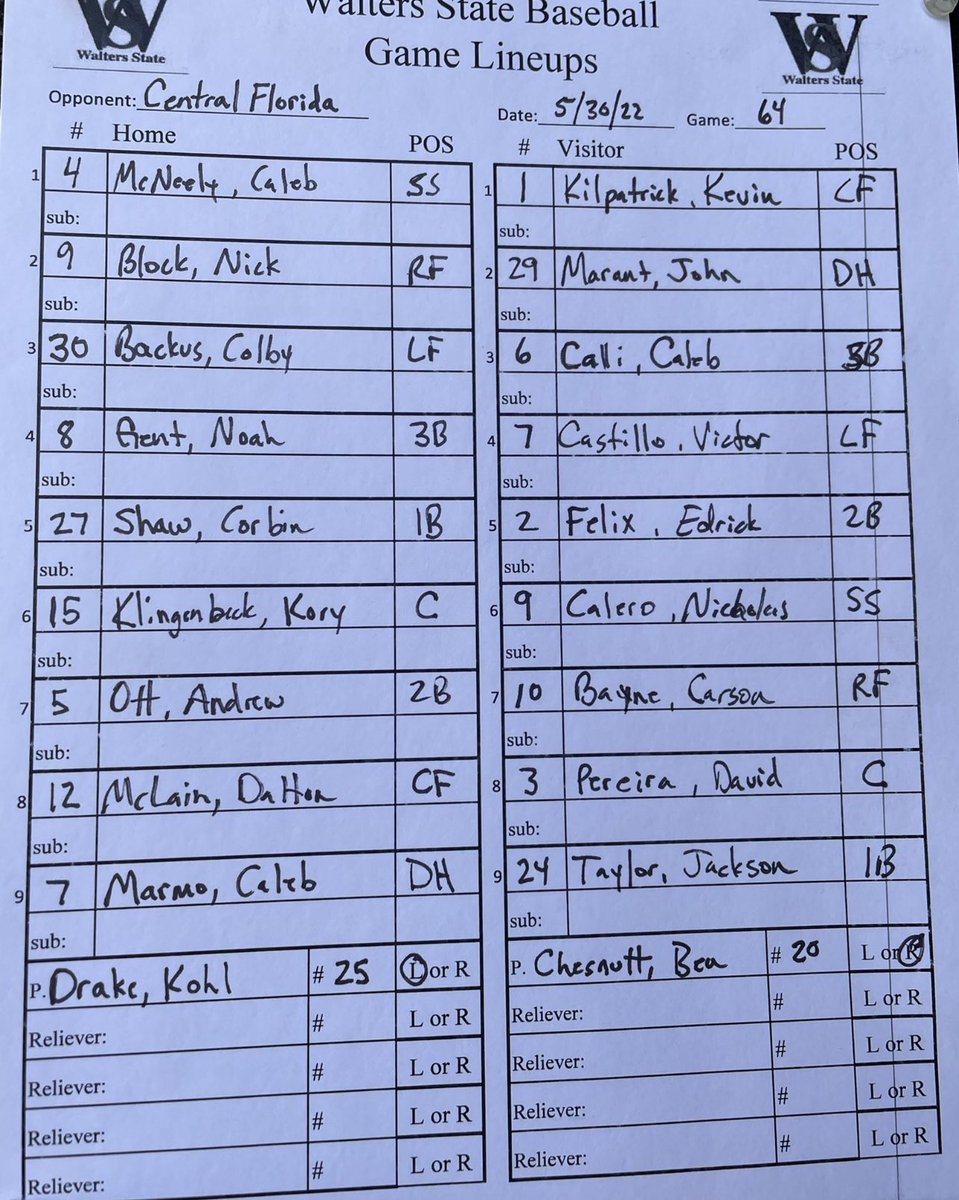 Walters State Baseball
Game Lineups
Walters State
Walters State
Opponent: Central Florida
Date: 5/30/22 Game: 64
# Home POS
1 4 McNeely, Caleb SS
sub:
2 9 Block, Nick RF
sub:
3 30 Backus, Colby LF
sub:
4 8 Gent, Noah 3B
sub:
5 27 Shaw, Corbin 1B
sub:
6 15 Klingenbeck, Kory C
sub:
7 5 Ott, Andrew 2B
sub:
8 12 McLain, Dalton CF
sub:
9 7 Marmo, Caleb DH
sub:
P. Drake, Kohl # 25 L or R
Reliever: # L or R
Reliever: # L or R
Reliever: # L or R
Reliever: # L or R
# Visitor POS
1 1 Kilpatrick, Kevin CF
sub:
2 29 Marant, John DH
sub:
3 6 Calli, Caleb 3B
sub:
4 7 Castillo, Victor LF
sub:
5 2 Felix, Edrick 2B
sub:
6 9 Calero, Nicholas SS
sub:
7 10 Bayne, Carson RF
sub:
8 3 Pereira, David C
sub:
9 24 Taylor, Jackson 1B
sub:
P. Chesnutt, Ben # 20 L or R
Reliever: # L or R
Reliever: # L or R
Reliever: # L or R
Reliever: # L or R